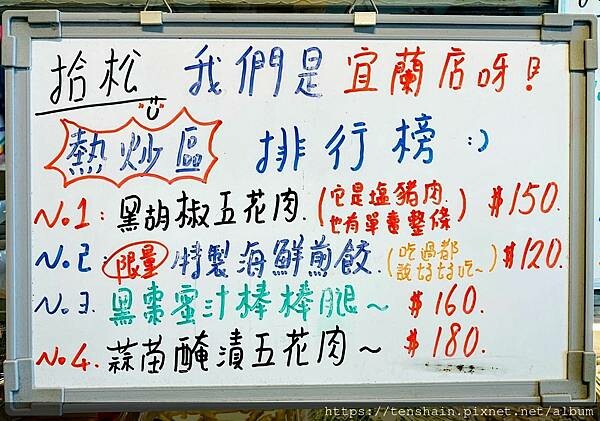 拾松 我們是宜蘭店呀!
熱炒區 排行榜 :)
No.1: 黑胡椒五花肉.(它是塩豬肉.也有單賣整條) $150.
No.2: 限量 特製海鮮煎餃.(吃過都說好好吃~) $120.
No.3. 黑棗蜜汁棒棒腿~ $160.
No.4. 蒜苗醃漬五花肉~ $180.
https://tenshain.pixnet.net/album